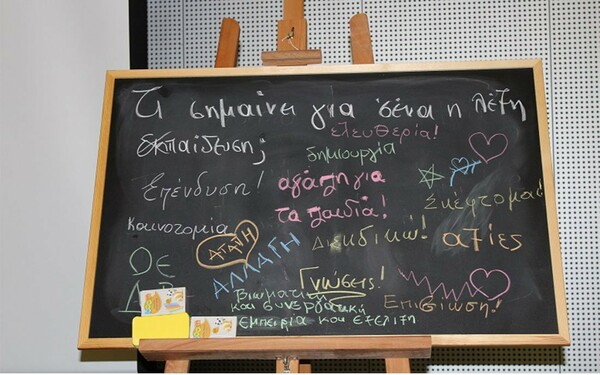 Τι σημαίνει για 'σένα η λέξη
εκπαίδευση;
ελευθερία!
δημιουργία
Επένδυση!
αγάπη για
τα παιδιά!
Σκέφτομαι!
Καινοτομία
ΑΓΑΠΗ
ΑΛΛΑΓΗ
Διεκδικώ!
αξίες
Γνώσεις!
Βιωματική
και συνεργατική
εμπειρία και εξέλιξη
Επιβίωση!